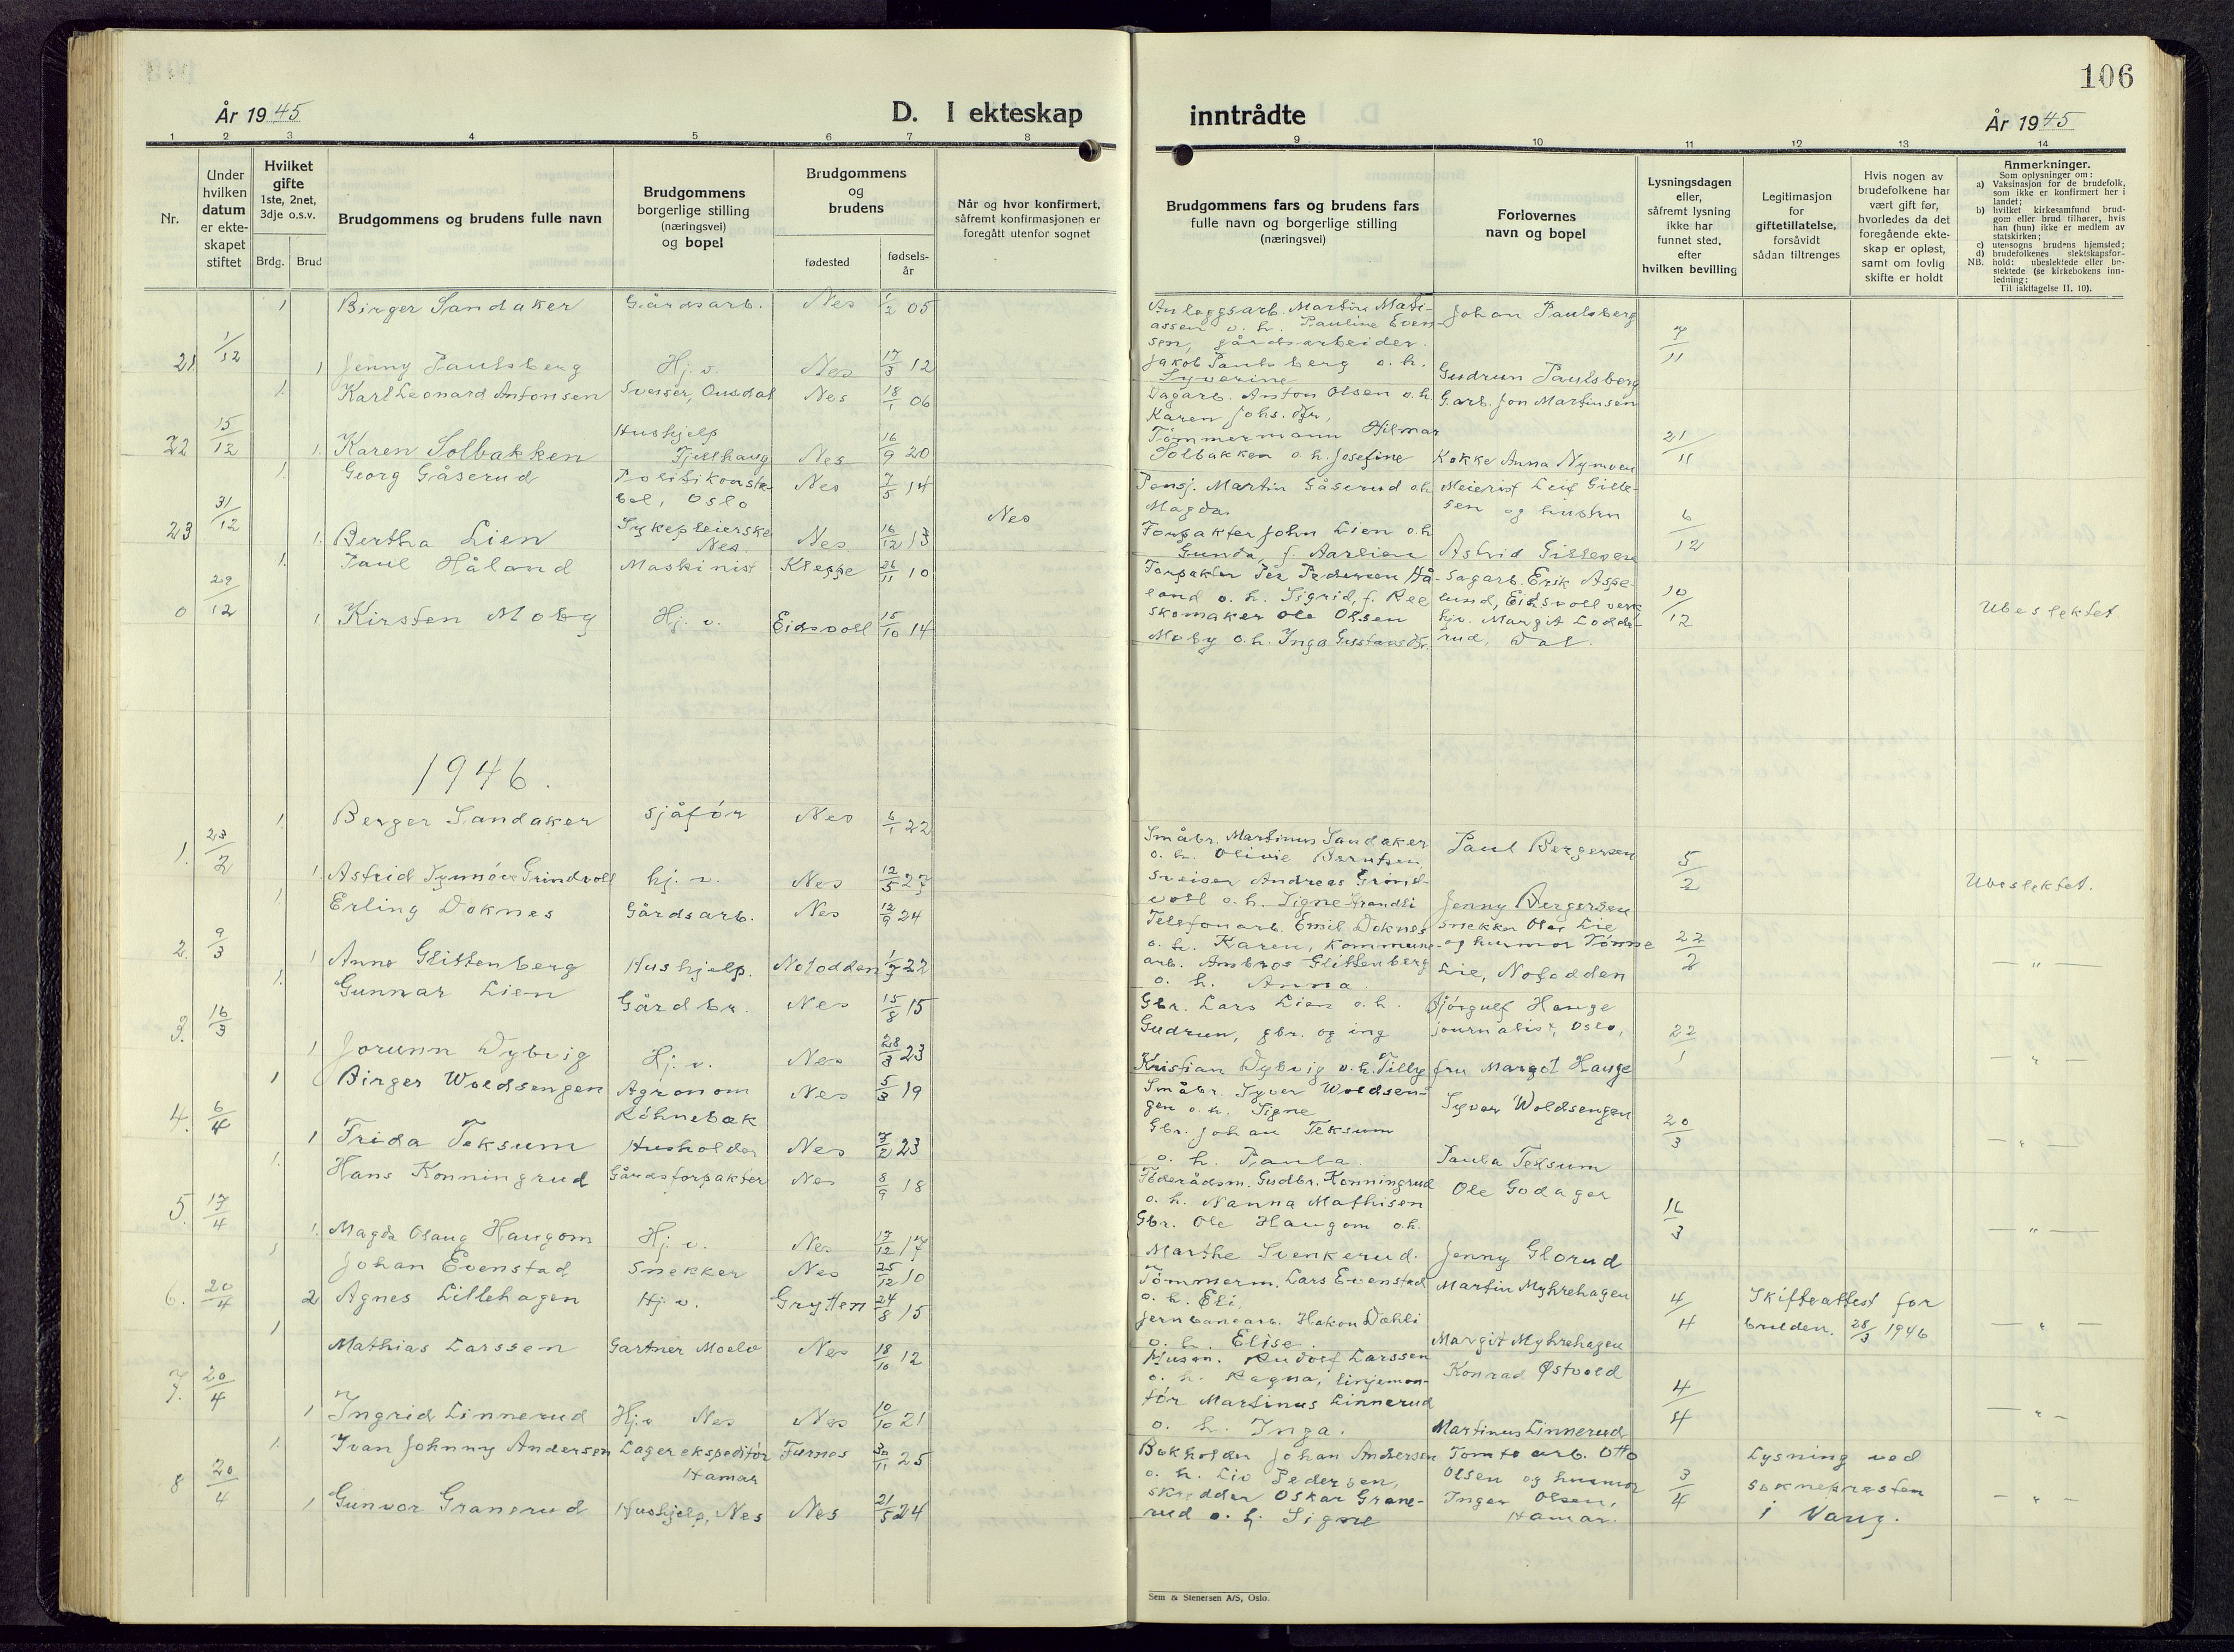 106
År 1945
D. I ekteskap
inntrådte
År 1945
1 2 3 4 5 6 7 8 9 10 11 12 13 14
Nr.
Under hvilken datum er ekteskapet stiftet
Hvilket gifte 1ste, 2net, 3dje o.s.v.
Brdg. Brud
Brudgommens og brudens fulle navn
Brudgommens borgerlige stilling (næringsvei) og bopel
Brudgommens og brudens
fødested
fødselsår
Når og hvor konfirmert, såfremt konfirmasjonen er foregått utenfor sognet
Brudgommens fars og brudens fars fulle navn og borgerlige stilling (næringsvei)
Forlovernes navn og bopel
Lysningsdagen eller, såfremt lysning ikke har funnet sted, efter hvilken bevilling
Legitimasjon for giftetillatelse, forsåvidt sådan tiltrenges
Hvis nogen av brudefolkene har vært gift før, hvorledes da det foregående ekteskap er opløst, samt om lovlig skifte er holdt
Anmerkninger.
Som oplysninger om:
a) Vaksinasjon for de brudefolk, som ikke er konfirmert her i landet;
b) hvilket kirkesamfund brudgom eller brud tilhører, hvis han (hun) ikke er medlem av statskirken;
c) utensogns brudens hjemsted;
d) brudefolkenes slektskapsforhold: ubeslektede eller beslektede (se kirkebokens innledning:
NB.
Til iakttagelse II. 10).
1 Birger Sandaker Gårdsarb. Nes 1/2 05 Anleggsarb. Martin Mati- Johan Paulsberg
assen o. h. Pauline Even-
sen, gårdsarbeider.
21 1/12 1 Jenny Paulsberg Hj. v. Nes 17/3 12 Jakob Paulsberg o. h. Gudrun Paulsberg 7/11
Syverine
1. Karl Leonard Antonsen Sveiser, Nes 18/1 06 Dagarb. Anton Olsen o.h. G.arb. Jon Martinsen
Karen Johs. dtr,
22 15/12 1. Karen Solbakken Hushjelp Fjellhaug Nes 16/9 20 Tömmermann Hilmar
Solbakken o.h. Josefine Kokke Anna Nymoen 21/11
1. Georg Gåserud Politikonsta- Nes 7/5 14 Pensj. Martin Gåserud o.h. Meierist Leif Gille-
bel, Oslo Magda. sen og hustru
23 31/12 1. Bertha Lien Sykepleierske Nes Nes 16/12 13 Nes Forpakter John Lien o.h. 6/12
Gunda, f. Aarlien Astrid Gillesen
1. Paul Håland Maskinist Kleppe 26/11 10 Forpakter Per Pedersen Hå- Sagarb. Erik Aspe-
land o. h. Sigrid, f. Ree lund, Eidsvoll verk
0 29/12 1 Kirsten Moby Hj. v. Eidsvoll 15/10 14 Skomaker Ole Olsen hjv. Margit 10/12 Ubeslektet
Moby o.h. Inga Gustavsdtr. rud, Dal.
1946.
1. Berger Sandaker Sjåfør Nes 6/1 22 Småbr. Martinus Sandaker Paul Bergersen
o. h. Olivie Berntsen,
1. 23/2 1. Astrid Synnöve Grindvoll hj. v. Nes 12/5 27 Sveiser Andreas Grind- 5/2 Ubeslektet.
voll o.h. Signe Jenny Bergersen
1 Erling Doknes Gårdsarb. Nes 12/9 24 Telefonarb. Emil Doknes Snekker Olav Lie
o. h. Karen, kommune- og husmor Tönne
2. 9/3 1 Anne Glittenberg Hushjelp. Notodden 1/7 22 arb. Ambros Glittenberg Lie, Notodden 22/2 — " —
o. h. Anna.
1. Gunnar Lien Gårdbr. Nes 15/8 15 Gbr. Lars Lien o. h. Bjørgulf Hauge
Gudrun, gbr. og ing journalist, Oslo,
3. 16/3 1 Jorunn Dybvig Hj. v. Nes 28/3 23 Kristian Dybvig o.h. Tilly fru Margot Hauge 22/1 — " —
1 Birger Woldsengen Agronom Nes 5/3 19 Småbr. Syver Woldsen- Syver Woldsengen
Löhnebæk gen o. h. Signe
4. 6/4 1 Frida Teksum Husholder Nes 7/2 23 Gbr. Johan Teksum 20/3 — " —
o. h. Paula. Paula Teksum
1. Hans Konningrud Gårdsforpakter Nes 8/9 18 Föderådsm. Gudbr. Konningrud Ole Godager
o. h. Nanna Mathisen
5. 17/4 1. Magda Olaug Haugom Hj. v. Nes 17/12 17 Gbr. Ole Haugom o.h. 16/3 — " —
Marthe Svenkerud. Jenny Glorud
1 Johan Evenstad Snekker Nes 25/12 10 Tömmerm. Lars Evenstad Martin Myhrehagen
o. h. Eli.
6. 20/4 2 Agnes Lillehagen Hj. v. Grytten 24/8 15 Jernbanearb. Hakon Dæhli 4/4 Skifteattest for
o. h. Elise. Margit Myhrehagen bruden. 28/3 1946 — " —
1 Mathias Larssen Gartner Moelv Nes 18/10 12 Rudolf Larssen Konrad Østvold
o. h. Ragna, linjemon-
7. 20/4 1 Ingrid Linnerud Hj.v Nes Nes 10/10 21 tör Martinus Linnerud 4/4 — " —
o. h. Inga. Martinus Linnerud
1. Ivan Johnny Andersen Lagerekspeditör Hamar Furnes 30/11 25 Bokholder Johan Andersen Tomtearb. Otto Lysning ved
o. h. Liv Pedersen, Olsen og husmor soknepresten
8 20/4 1 Gunvor Granerud Hushjelp, Nes Nes 21/5 24 Skredder Oskar Grane- Inger Olsen, 3/4 i Vang. — " —
rud o. h. Signe Hamar.
Sem & Stenersen A/S, Oslo.